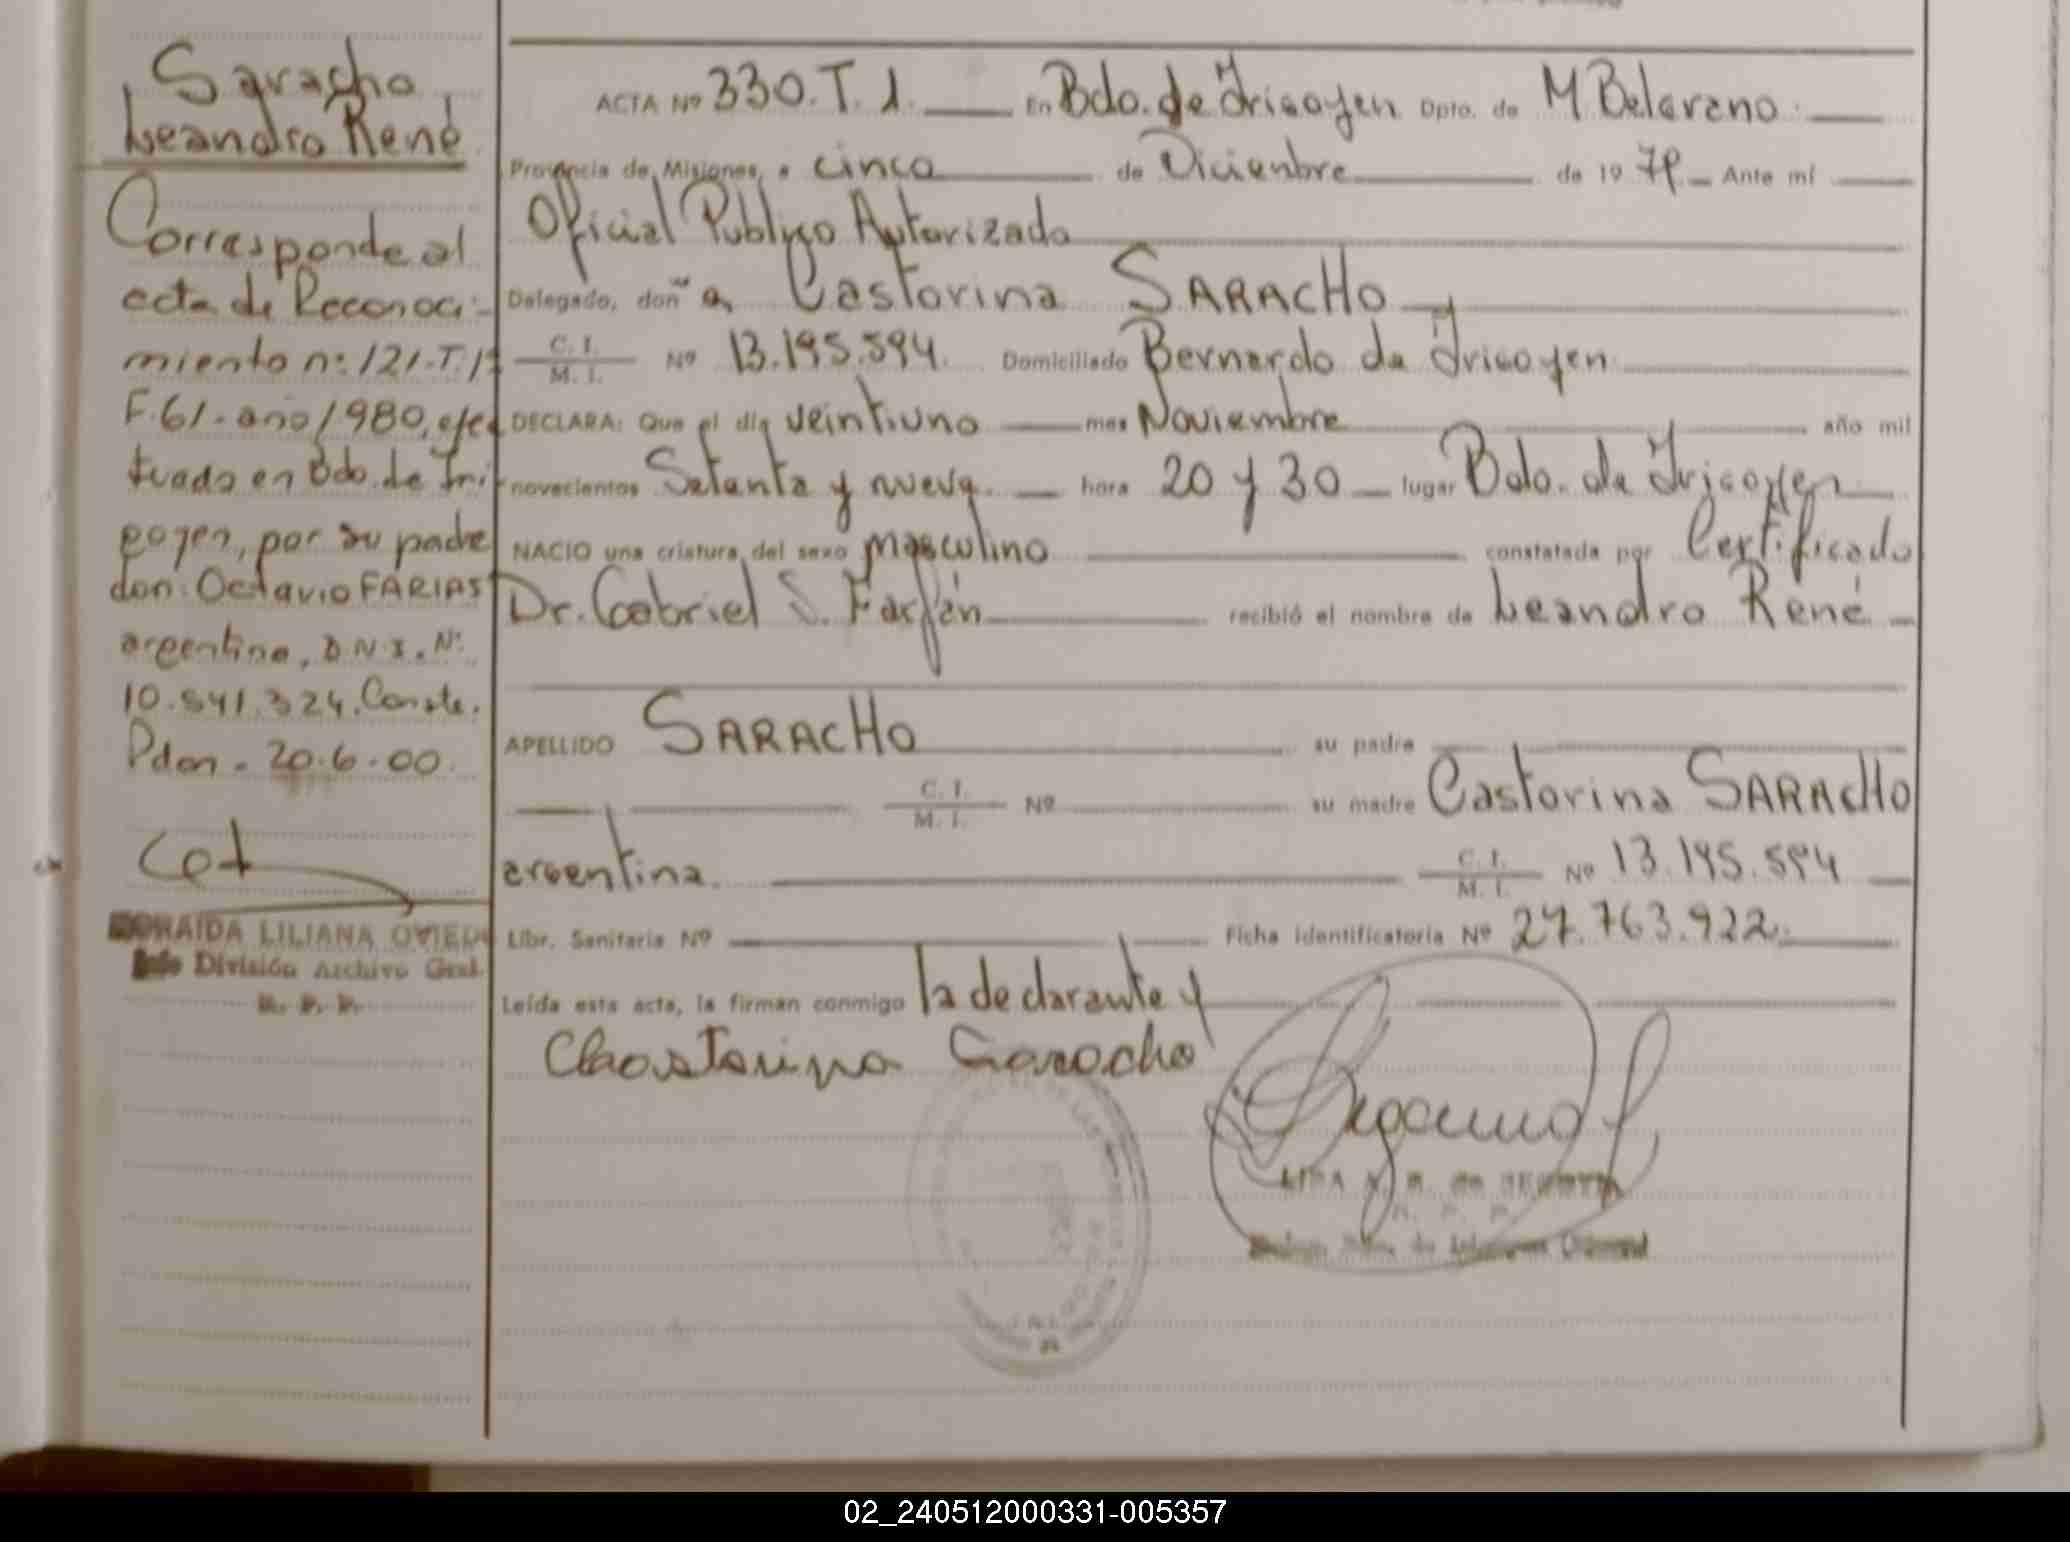 Saracho
Leandro René
Corresponde al
acta de Reconoci-
miento n: 121-T. 1º
F. 61 - año 1980, efec
tuado en Bdo. de Iri
goyen, por su padre
don: Octavio FARIAS
argentino, D.N.I. Nº
10.541.324. Conste.
Pdas - 20.6.00.
LILIANA OVIEDO
División Archivo Gral.
R. P. P.
ACTA Nº 330. T. 1. En Bdo. de Irigoyen Dpto. de M. Belgrano
Provincia de Misiones, a cinco de Diciembre de 19 79 Ante mí
Oficial Publico Autorizado
Delegado, don ña Castorina SARACHO
C. I. / M. I. Nº 13.195.594. Domiciliado Bernardo de Irigoyen
DECLARA: Que el día veintiuno mes Noviembre año mil
novecientos Setenta y nueve hora 20 y 30 lugar Bdo. de Irigoyen
NACIO una criatura del sexo masculino constatada por Certificado
Dr. Gabriel S. Farfán recibió el nombre de Leandro René
APELLIDO SARACHO su padre
C. I. / M. I. Nº su madre Castorina SARACHO
argentina. C. I. / M. I. Nº 13.195.594
Libr. Sanitaria Nº Ficha identificatoria Nº 27.763.922.
Leída esta acta, la firman conmigo la declarante y
Chastorina Saracho
02_240512000331-005357